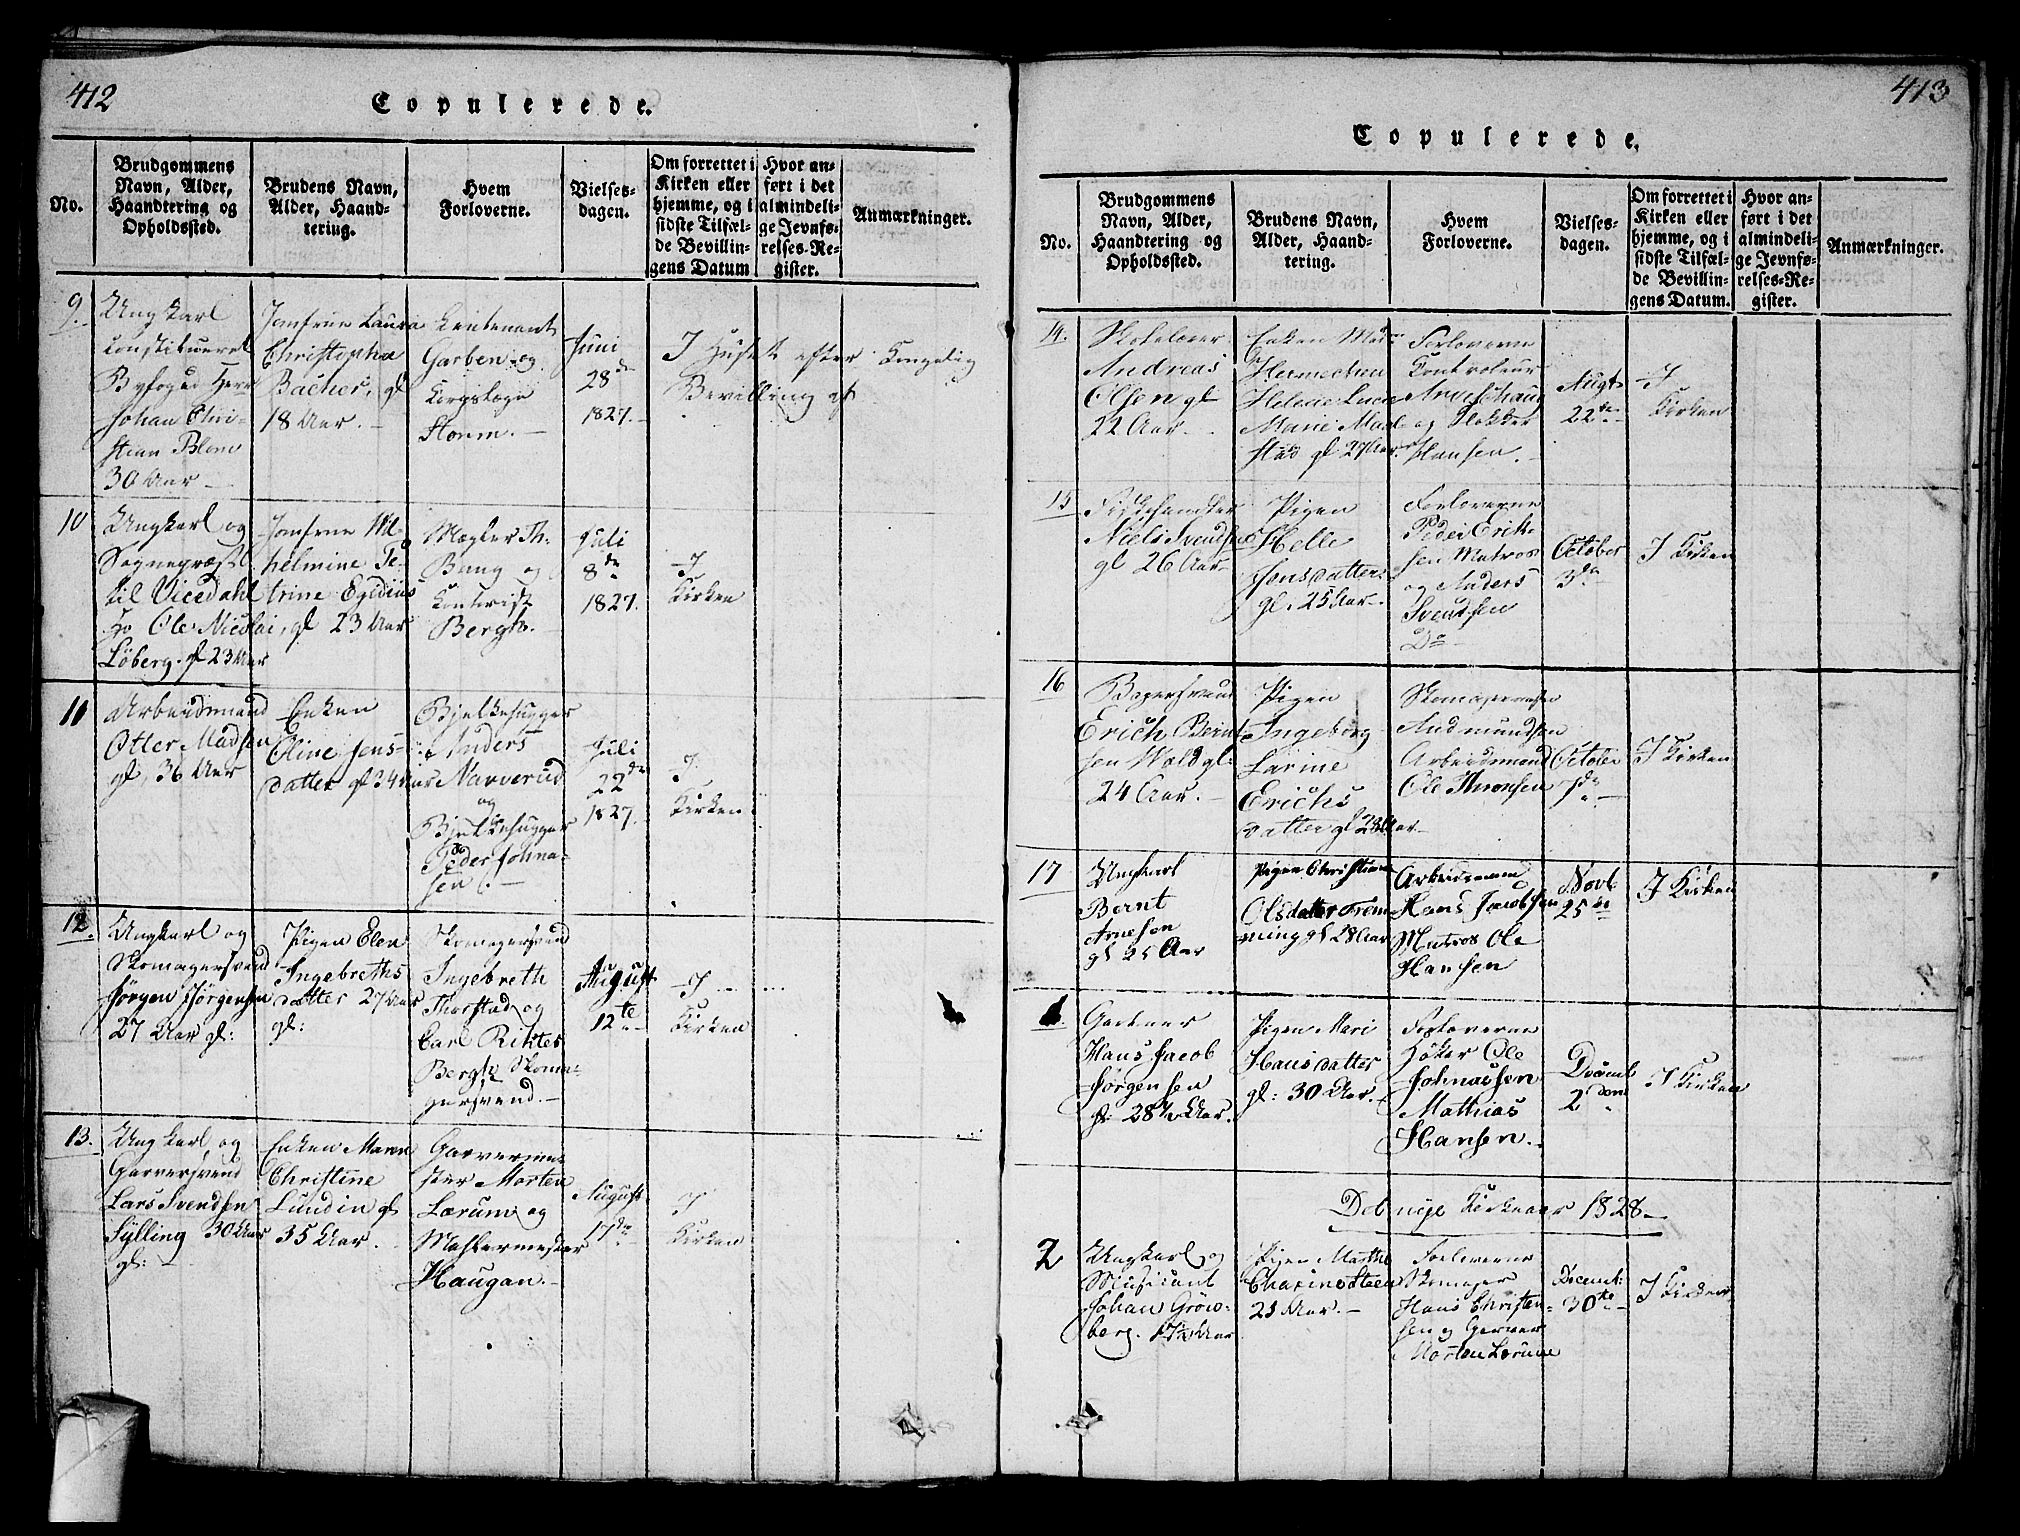 412
Copulerede.
No.
Brudgommens
Navn, Alder,
Haandtering og
Opholdssted.
Brudens Navn,
Alder, Haand-
tering.
Hvem
Forloverne.
Vielses-
dagen.
Om forrettet i
Kirken eller
hjemme, og i
sidste Tilfæl-
de Bevillin-
gens Datum
Hvor an-
ført i det
almindeli-
ge Jevnfø-
relses-Re-
gister.
Anmærkninger.
9.
Ungkarl
constitueret
Byfoged Herr
Johan Chri-
stian Blom
30 Aar
Jomfrue Laura
Christopha
Bacher, gl
18 Aar.
Lieutenant
Garben og
Storm.
Juni
28de
1827.
I Huset efter Kongelig
Bevilling af
10
Ungkarl og
Sognepræst
til Vicedahl
Hr Ole Nicolai
Löberg. gl 23 Aar
Jomfrue
helmine Pe-
trine Egidius
gl 23 Aar
Mægler Th.
Bang og
Contorist
Bergh.
Juli
8de
1827.
I
Kirken
11
Arbeidsmand
Otter Madsen
gl, 36 Aar
Enken
Oline Jens-
datter gl 34 Aar
Bjelkehugger
Anders
Narverud
og
Bjelkehugger
Peder Johna-
sen
Juli
22de
1827.
I
Kirken
12.
Ungkarl og
Skomagersvend
Jörgen Jörgensen
27 Aar gl:
Pigen Elen
Ingebreths
datter 27 Aar
gl:
Skomagersvend
Ingebreth
Thorstad og
Carl
Bergh Skoma-
gersvend.
August
12te
I
Kirken
13.
Ungkarl og
Garversvend
Lars Svendsen
Sylling 30 Aar
gl:
Enken Maren
Christine
Lundin gl
35 Aar.
Garverme-
ster Morten
Lærum og
Mahlermester
Haugan.
August
17de
I
Kirken
413
Copulerede.
No.
Brudgommens
Navn, Alder,
Haandtering og
Opholdssted.
Brudens Navn,
Alder, Haand-
tering.
Hvem
Forloverne.
Vielses-
dagen.
Om forrettet i
Kirken eller
hjemme, og i
sidste Tilfæl-
de Bevillin-
gens Datum.
Hvor an-
ført i det
almindeli-
ge Jevnfø-
relses-Re-
gister.
Anmærkninger.
14.
Skolelærer
Andreas
Olsen gl
22 Aar.
Enken
Helene Lucie
Marie
stad gl 27 Aar.
Forloverne
Controleur
og Klokker
Hansen.
Augt
22de
I
Kirken
15
Fiskehandler
Niels Svendsen
gl 26 Aar
Pigen
Helle
Jensdatter
gl. 25 Aar.
Forloverne
Peder Erik-
sen Matros
og Anders
Svendsen
Do
October
3de
I Kirken
16
Bagersvend
Erich Bernt
sen Wold gl:
24 Aar.
Pigen
Ingeborg
Larine
Erichs
datter gl 28 Aar
Andmundsen
Arbeidsmand
Ole Thronsen
October
7de
I Kirken
17
Ungkarl
Bernt
Arnesen
gl 25 Aar
Pigen Christiane
Olsdatter Frem
ming gl 28 Aar
Arbeidsmand
Hans Jacobsen
Matros Ole
Hansen
Novb
25de
I Kirken
1.
Hans Jacob
Jörgensen
gl: 28½ Aar.
Pigen Mari
Hansdatter
gl: 30 Aar.
Forloverne
Höker Ole
Johnassen
Mathias
Hansen.
Decemb
2den
I Kirken
Det nÿe Kirkeaar 1828
2
Ungkarl og
Musicant
Johan Grön-
berg. 17½ Aar
Pigen Marthe
Steen
25 Aar.
Forloverne
Skomager
Hans Christen-
sen og Garver
Morten Lærum
Decemb:
30te
I Kirken